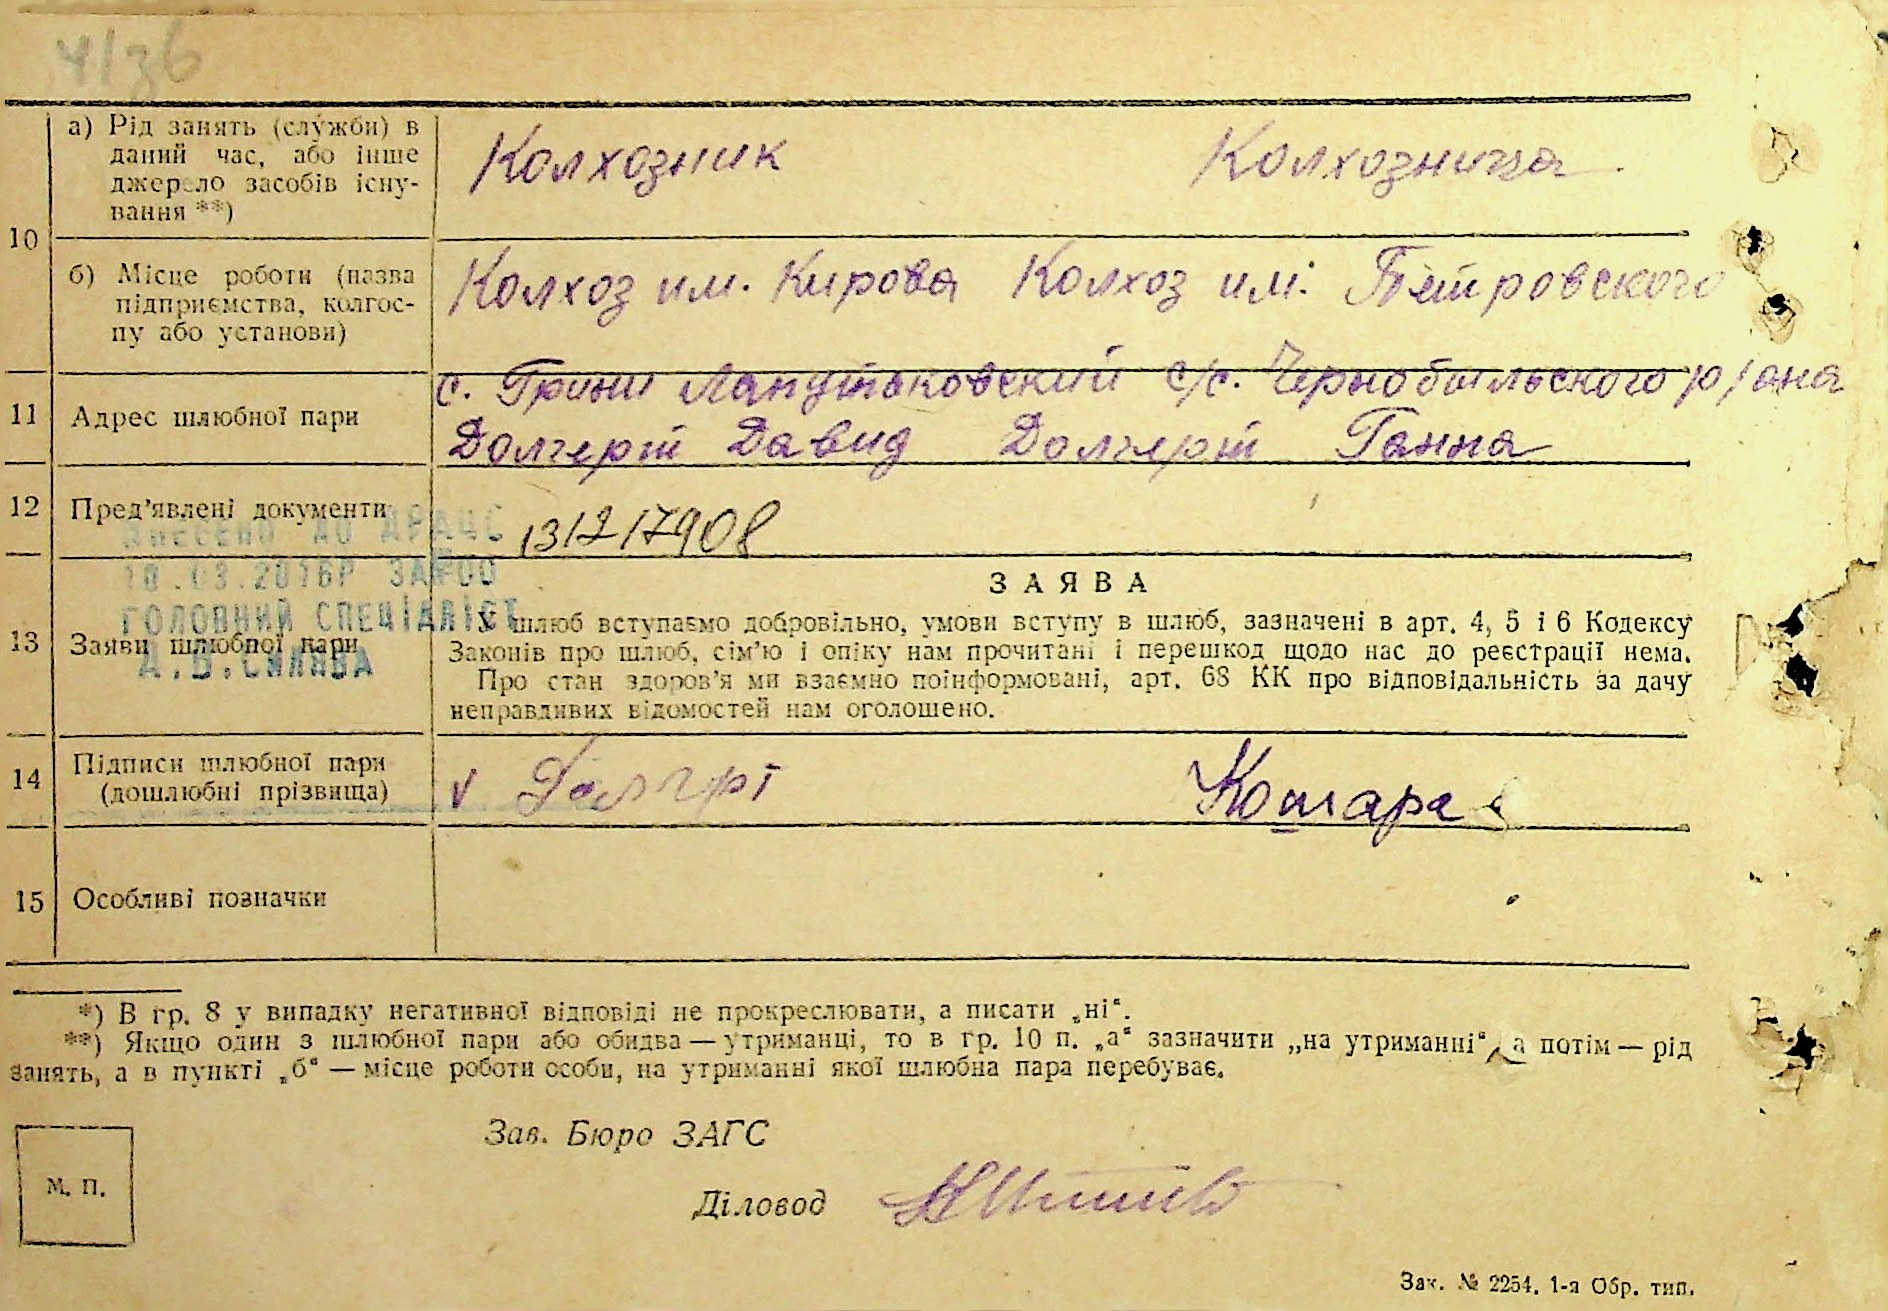 4136
10
а) Рід занять (служби) в
даний час, або інше
джерело засобів існу-
вання **)
Колхозник Колхозница
б) Місце роботи (назва
підприємства, колгос-
пу або установи)
Колхоз им. Кирова Колхоз им. Петровского
11 Адрес шлюбної пари
с. Грини с/с. Чернобыльского р/она
Долгерт Давид Долгерт Ганна
12 Пред'явлені документи
13/2/7908
ВНЕСЕНО ДО ДРАЦС
ГОЛОВНИЙ СПЕЦІАЛІСТ
13 Заяви шлюбної пари
ЗАЯВА
У шлюб вступаємо добровільно, умови вступу в шлюб, зазначені в арт. 4, 5 і 6 Кодексу
Законів про шлюб, сім'ю і опіку нам прочитані і перешкод щодо нас до реєстрації нема.
Про стан здоров'я ми взаємно поінформовані, арт. 68 КК про відповідальність за дачу
неправдивих відомостей нам оголошено.
14 Підписи шлюбної пари
(дошлюбні прізвища)
v
15 Особливі позначки
*) В гр. 8 у випадку негативної відповіді не прокреслювати, а писати „ні“.
**) Якщо один з шлюбної пари або обидва — утриманці, то в гр. 10 п. „а“ зазначити „на утриманні“, а потім — рід
занять, а в пункті „б“ — місце роботи особи, на утриманні якої шлюбна пара перебуває.
Зав. Бюро ЗАГС
М. П.
Діловод
Зак. № 2254. 1-а Обр. тип.